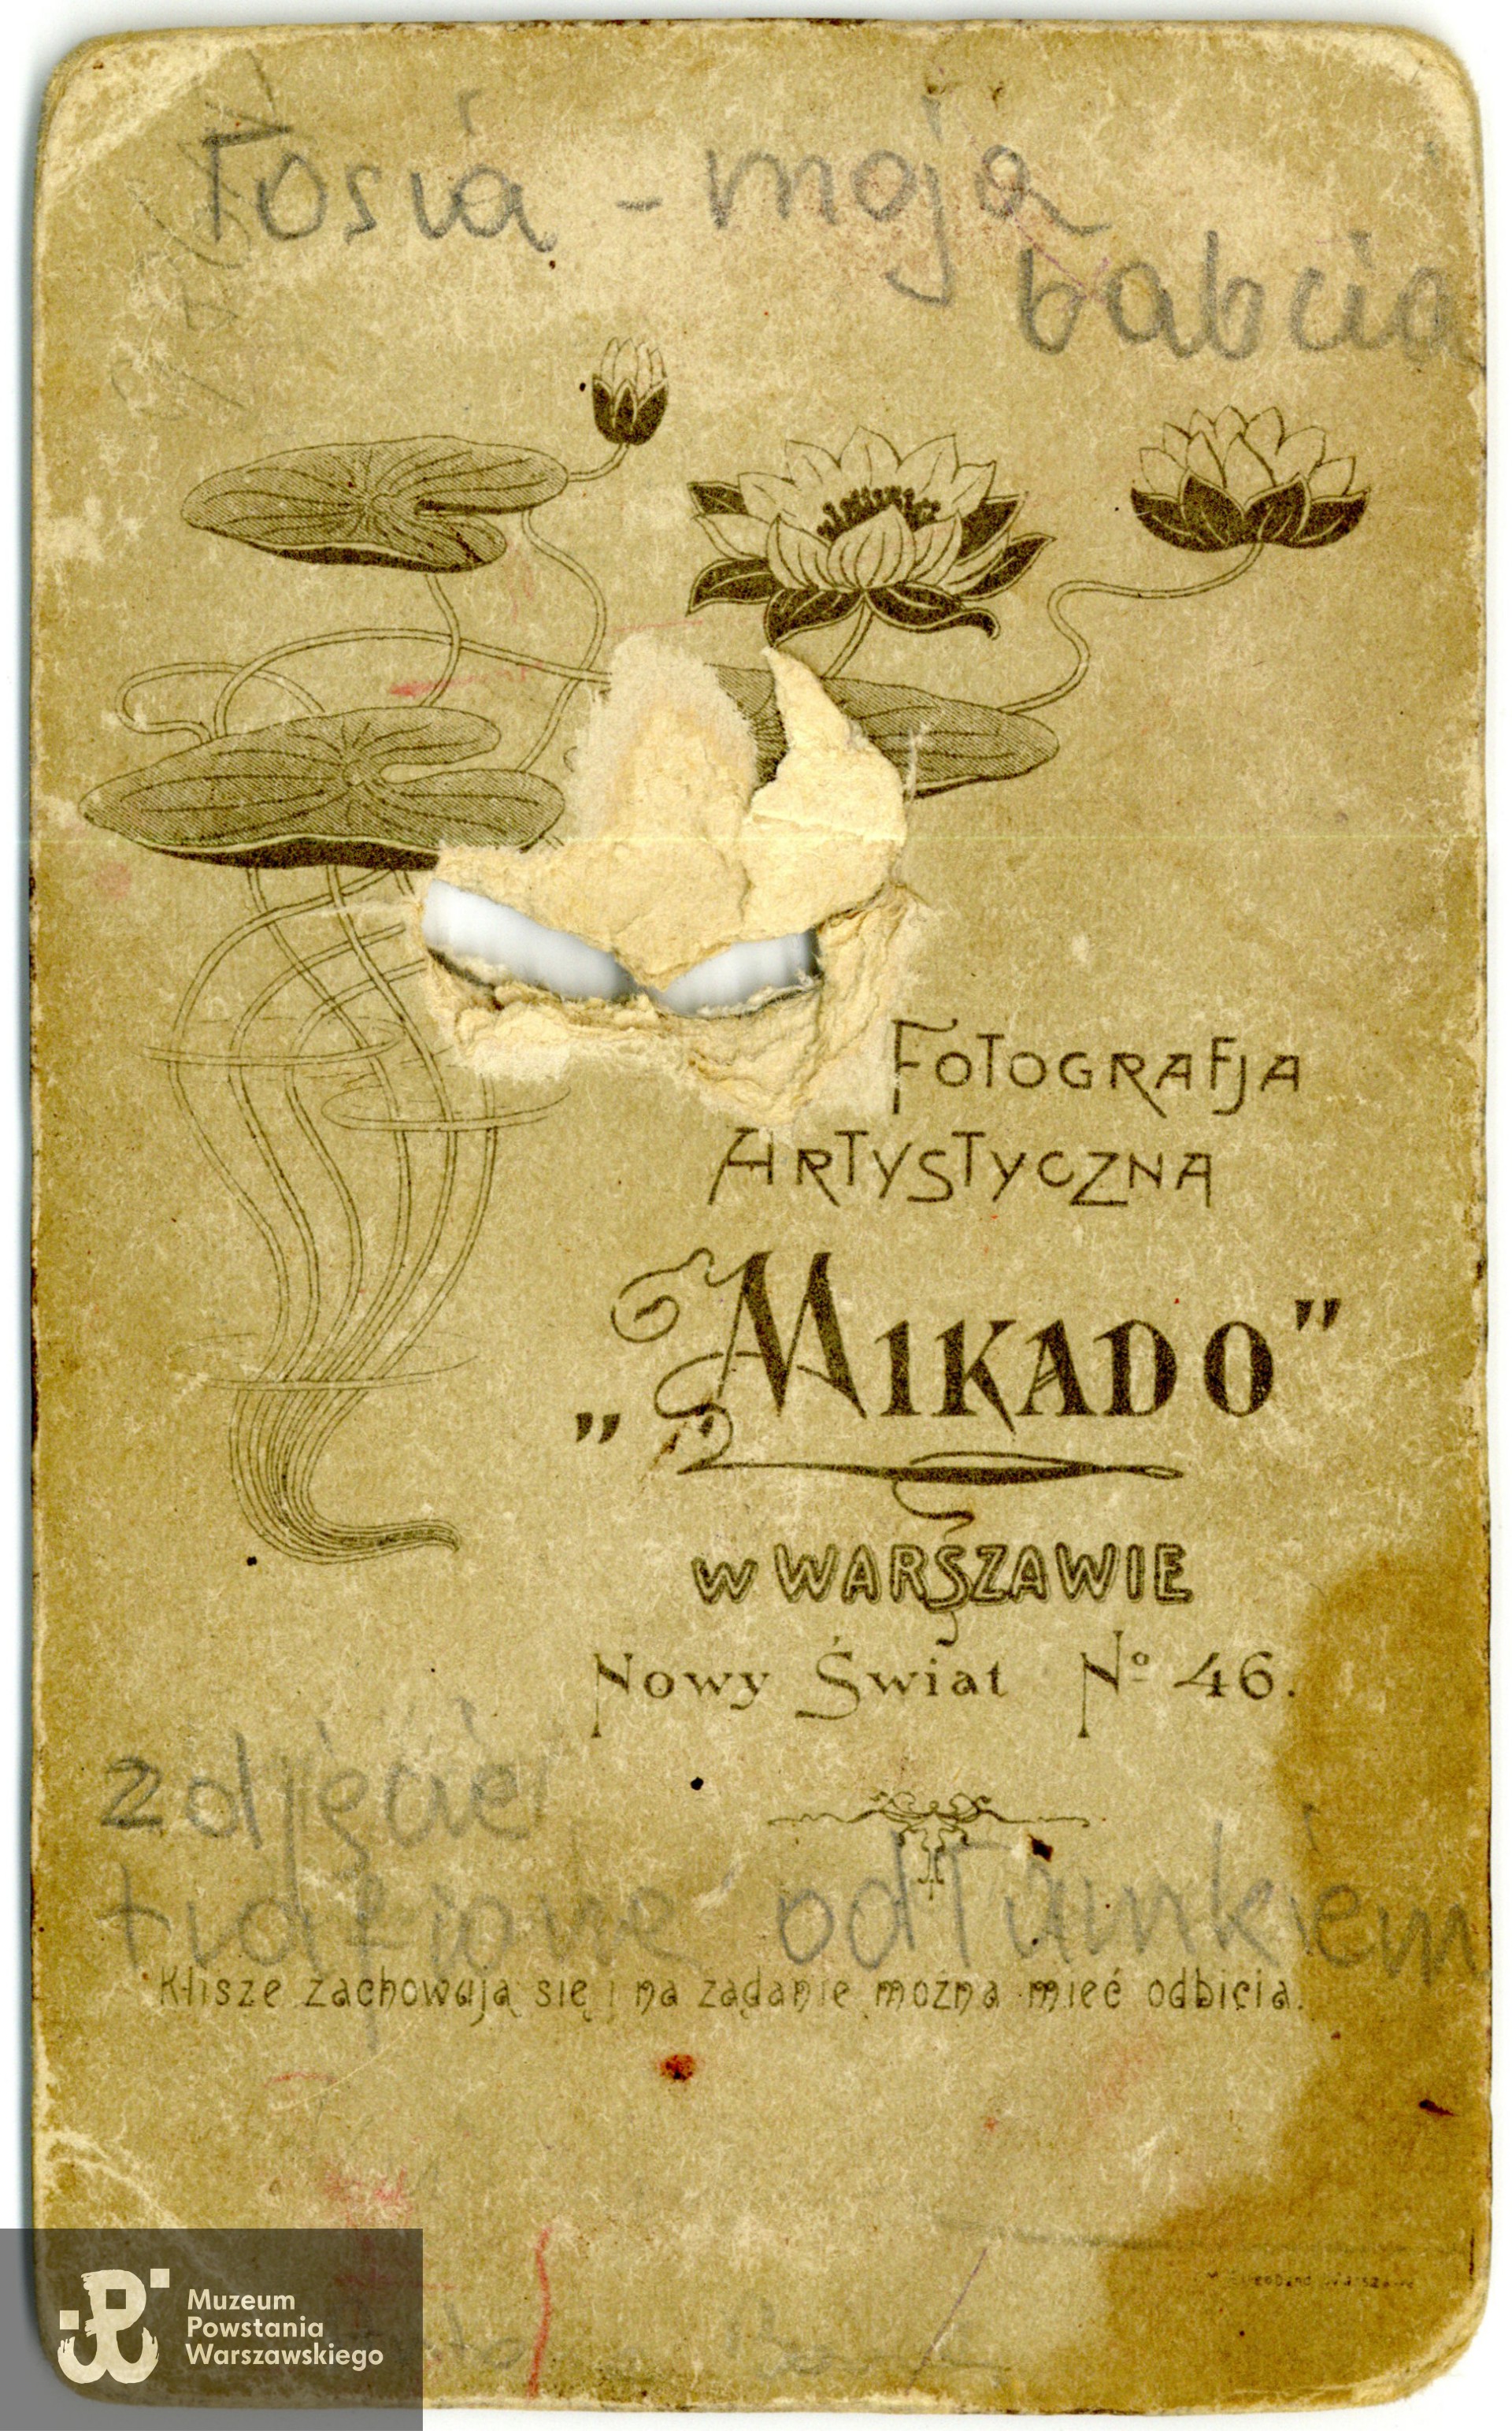 Tosia - moja
babcia
FOTOGRAFJA
ARTYSTYCZNA
„MIKADO"
W WARSZAWIE
Nowy Świat Nº 46.
zdjęcie
trafione odłamkiem
Klisze zachowują się i na żądanie można mieć odbicia.
Muzeum
Powstania
Warszawskiego